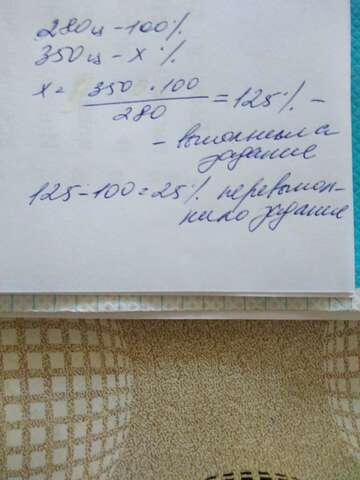 280ц - 100%
350ц - х %
х = 350 · 100 / 280 = 125% -
- выполнила
задание
125 - 100 = 25% перевыпол-
нило задание